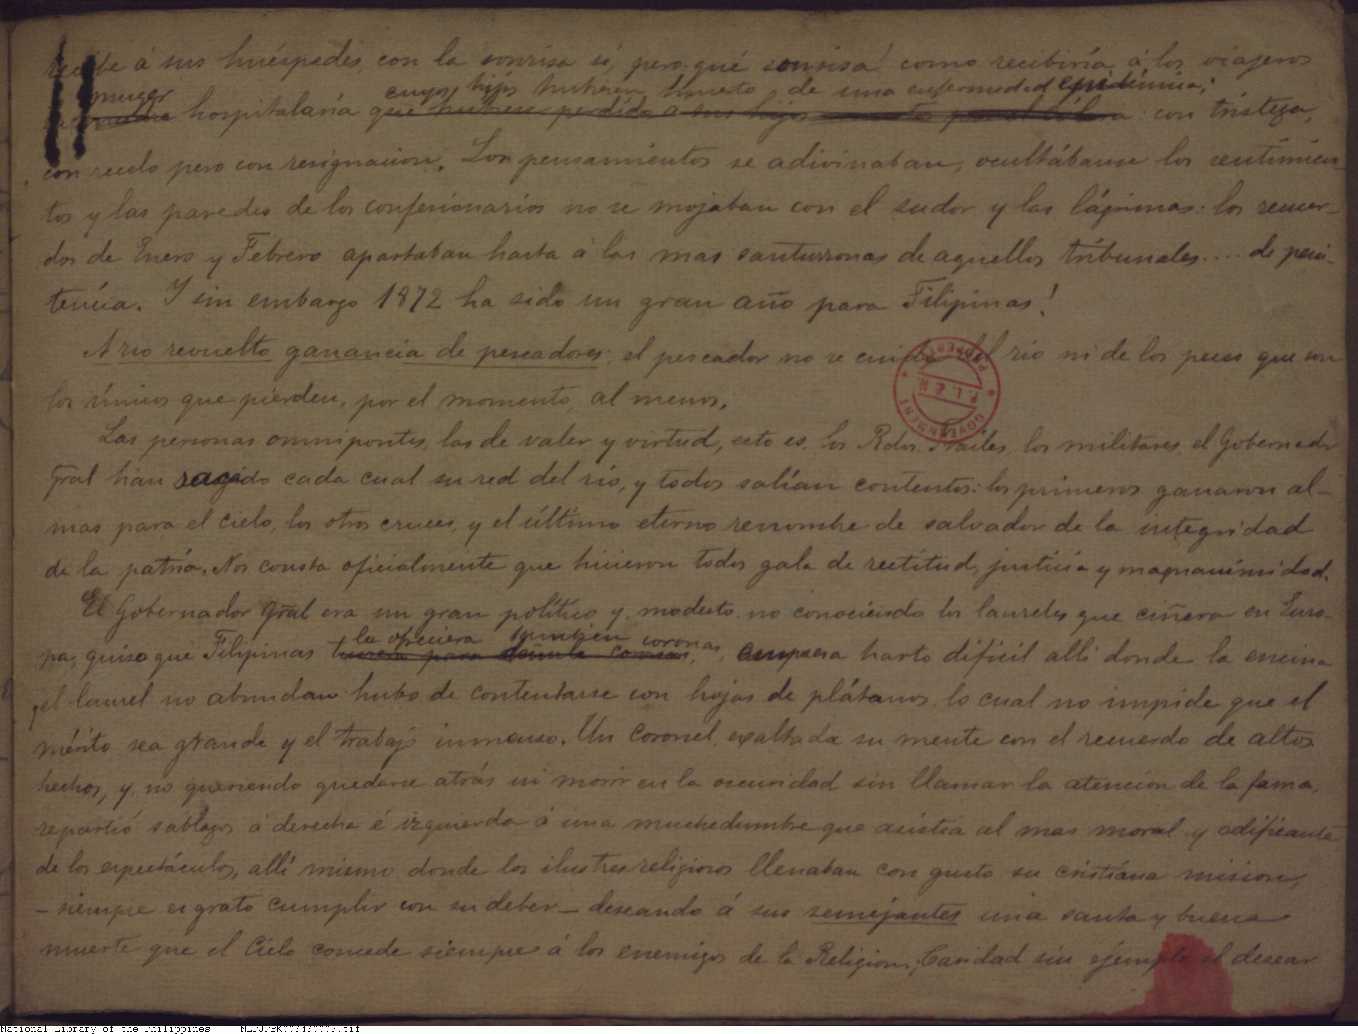 recibe á sus huéspedes con la sonrisa sí, pero qué sonrisa! como recibiría á los viajeros
muger cuyos hijos hubieran muerto de una enfermedad epidémica;
hospitalaria que hubiese perdido a sus hijos con tristeza,
con recelo pero con resignacion. Los pensamientos se adivinaban, ocultábanse los sentimien-
tos y las paredes de los confesionarios no se mojaban con el sudor y las lágrimas: los recuer-
dos de Enero y Febrero apartaban hasta á las mas santurronas de aquellos tribunales.... de peni-
tencia. Y sin embargo 1872 ha sido un gran año para Filipinas!
A rio revuelto ganancia de pescadores: el pescador no se cuida del rio ni de los peces que son
los únicos que pierden, por el momento, al menos.
Las personas omnipontes, las de valer y virtud, esto es, los Rdos. Frailes, los militares, el Gobernador
Gral han sacado cada cual su red del rio, y todos salían contentos: los primeros ganaron al-
mas para el cielo, los otros cruces, y el último eterno renombre de salvador de la integridad
de la patria. Nos consta oficialmente que hicieron todos gala de rectitud, justicia y magnanimidad.
El Gobernador Gral era un gran político y modesto no conociendo los laureles que ciñera en Euro-
la ofreciera tambien coronas
pa, quiso que Filipinas empresa harto difícil allí donde la encina
y el laurel no abundan hubo de contentarse con hojas de plátanos lo cual no impide que el
mérito sea grande y el trabajo inmenso. Un Coronel, exaltada su mente con el recuerdo de altos
hechos, y no queriendo quedarse atrás ni morir en la oscuridad sin llamar la atencion de la fama,
repartió sablazos á derecha é izquierda á una muchedumbre que asistia al mas moral y edificante
de los espectáculos, allí mismo donde los ilustres religiosos llenaban con gusto su cristiana mision,
- siempre es grato cumplir con su deber - deseando á sus semejantes una santa y buena
muerte que el Cielo concede siempre á los enemigos de la Religion. Caridad sin ejemplo el desear
GOVERNMENT PROPERTY
P. L. & M.
National Library of the Philippines